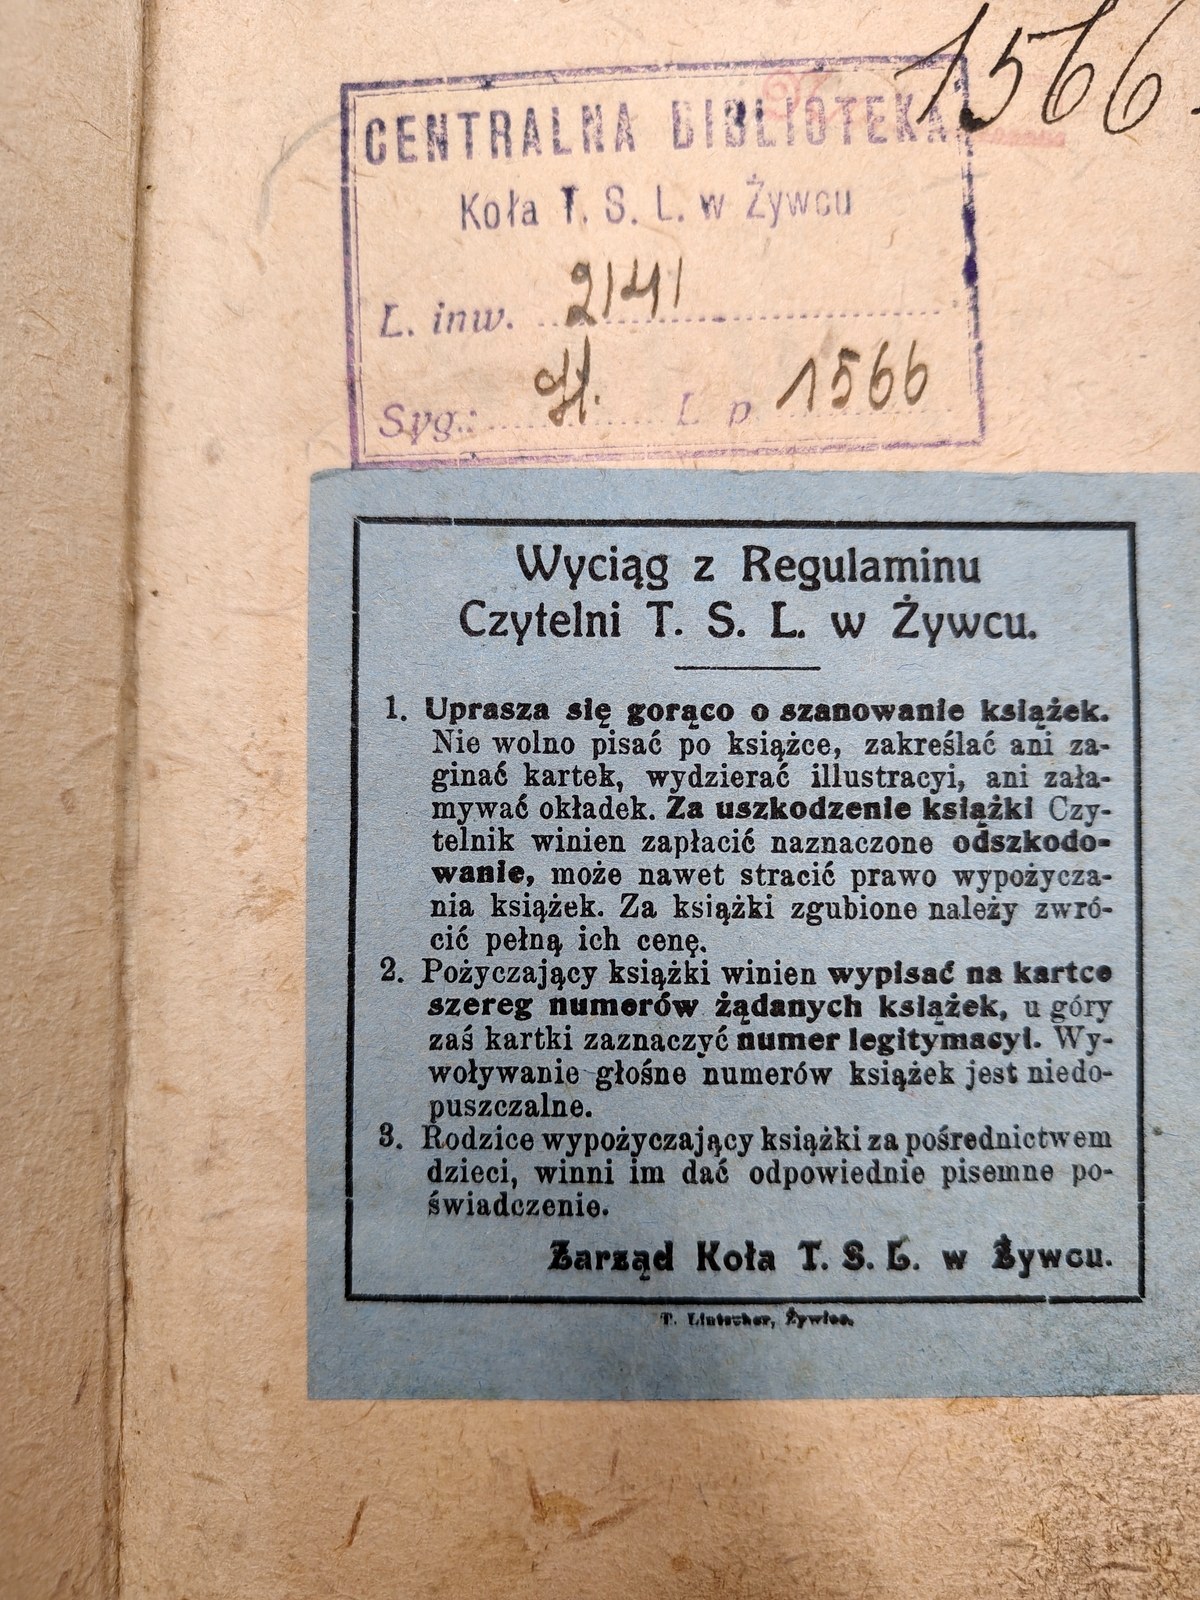 1566
CENTRALNA BIBLIOTEKA
Koła T. S. L. w Żywcu
L. inw. 2141
Syg.: L. p. 1566
Wyciąg z Regulaminu
Czytelni T. S. L. w Żywcu.
1. Uprasza się gorąco o szanowanie książek.
Nie wolno pisać po książce, zakreślać ani za-
ginać kartek, wydzierać illustracyi, ani zała-
mywać okładek. Za uszkodzenie książki Czy-
telnik winien zapłacić naznaczone odszkodo-
wanie, może nawet stracić prawo wypożycza-
nia książek. Za książki zgubione należy zwró-
cić pełną ich cenę.
2. Pożyczający książki winien wypisać na kartce
szereg numerów żądanych książek, u góry
zaś kartki zaznaczyć numer legitymacyi. Wy-
woływanie głośne numerów książek jest niedo-
puszczalne.
3. Rodzice wypożyczający książki za pośrednictwem
dzieci, winni im dać odpowiednie pisemne po-
świadczenie.
Zarząd Koła T. S. L. w Żywcu.
T. Lintscher, Żywiec.